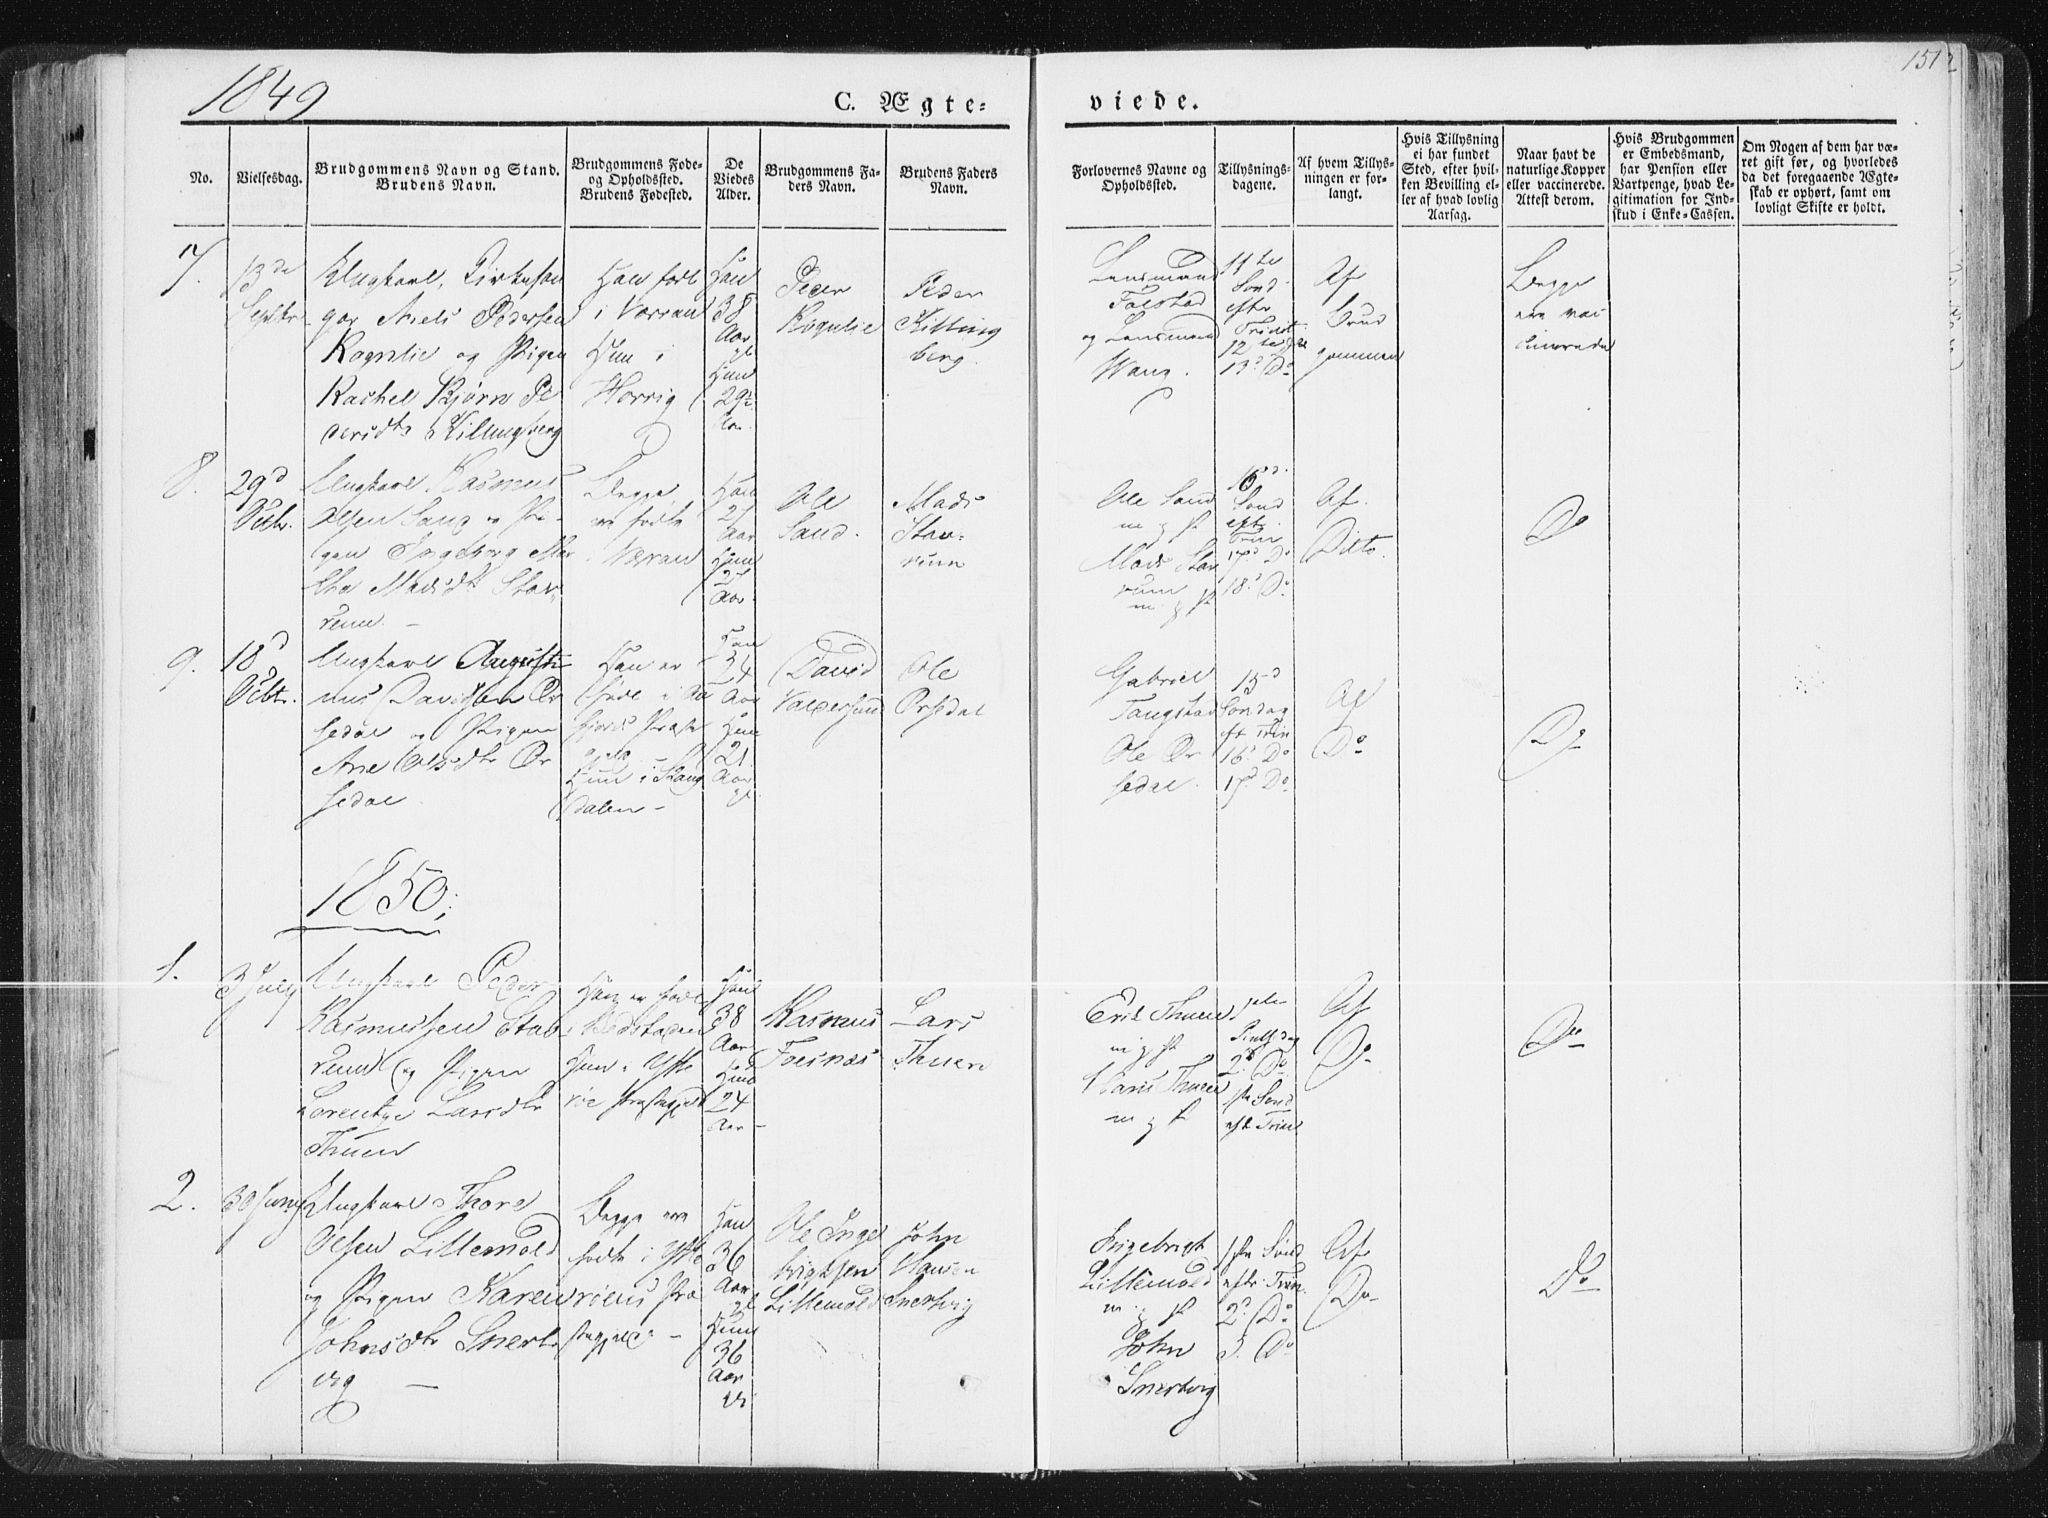 1849
C. Ægte=
viede.
151
No.
Vielsesdag.
Brudgommens Navn og Stand.
Brudens Navn.
Brudgommens Føde-
og Opholdssted.
Brudens Fødested.
De
Viedes
Alder.
Brudgommens Fa-
ders Navn.
Brudens Faders
Navn.
Forlovernes Navne og
Opholdssted.
Tillysnings-
dagene.
Af hvem Tillys-
ningen er for-
langt.
Hvis Tillysning
ei har fundet
Sted, efter hvil-
ken Bevilling el-
ler af hvad lovlig
Aarsag.
Naar havt de
naturlige Kopper
eller vaccinerede.
Attest derom.
Hvis Brudgommen
er Embedsmand,
har Pension eller
Vartpenge, hvad Le-
gitimation for Ind-
skud i Enke-Cassen.
Om Nogen af dem har væ-
ret gift før, og hvorledes
da det foregaaende Ægte-
skab er ophørt, samt om
lovligt Skifte er holdt.
7.
13de
Septbr
Ungkarl, Kirkesan
ger Niels Pedersen
Rognlie og Pigen
Rachel Bjørn Pe
dersdtr Killingberg
Han født
i Værran
Hun i
Han
38
Aar
gl
Hun
29½
Aar
Peder
Rognlie
Peder
Killing
berg.
Lensmand
Faestad
og Lensmand
Wang.
11te
Sønd
efter
Trinit
12te
13d Do
Af
Brud
gommen
Begge
ere vac
cinerede
8.
29d
Octbr.
Ungkarl Rasmus
Olsen Sand og Pi-
gen Ingeborg Mar
tha Madsdtr Star-
reun.
Begge
ere fødte
i Værran
Han
27
Aar
Hun
27
Aar.
Ole
Sand.
Mads
Star-
reun
Ole Sand
Mads Star
16d.
Sønd
eft.
Trin
17d Do
18d Do
Af.
Ditto.
Do
9.
18d
Octbr.
Ungkarl Augusti
nus Davidsen Or
sedal og Pigen
Ane Olsdtr Or
sedal
Han er
Hun i Stang
dalen-
24
Aar
Hun
21
Aar
gl.
David
Valdersund
Ole
Orsedal
Gabriel
Tangstad
Ole Or
sedal.
15d
Søndag
eft Trin
16d Do
17d Do.
Af
Do
Do
1850;
1.
3 July
Ungkarl Peder
Rasmussen
og Pigen
Lorentze Larsdtr
Thuen
Han er født
i Bedstaden
Hun i Ytte
røe Præstegjeld
Han
38
Aar
Hun
24
Aar-
Rasmus
Faesnæs
Lars
Thuen
Erik Thuen
Hans Thuen
Pintsdag
2d Do
1ste Sønd
eft Trin
Af
Do
Do
2.
30 Juny
Ungkarl Thore
Olsen Lillemold
og Pigen Karen
Johnsdtr Snert
vig
Begge ere
fødte i Ytte
røens Præ
stegjeld -
Han
36
Aar
gl
Hun
36
Aar
Ole Inge
brigtsen
Lillemold
John
Hansen
Snertvig
Ingebrigt
Lillemold
John
Snertvig
1ste Sønd
eftr Trin.
2d Do
3. Do
Af
Do
Do